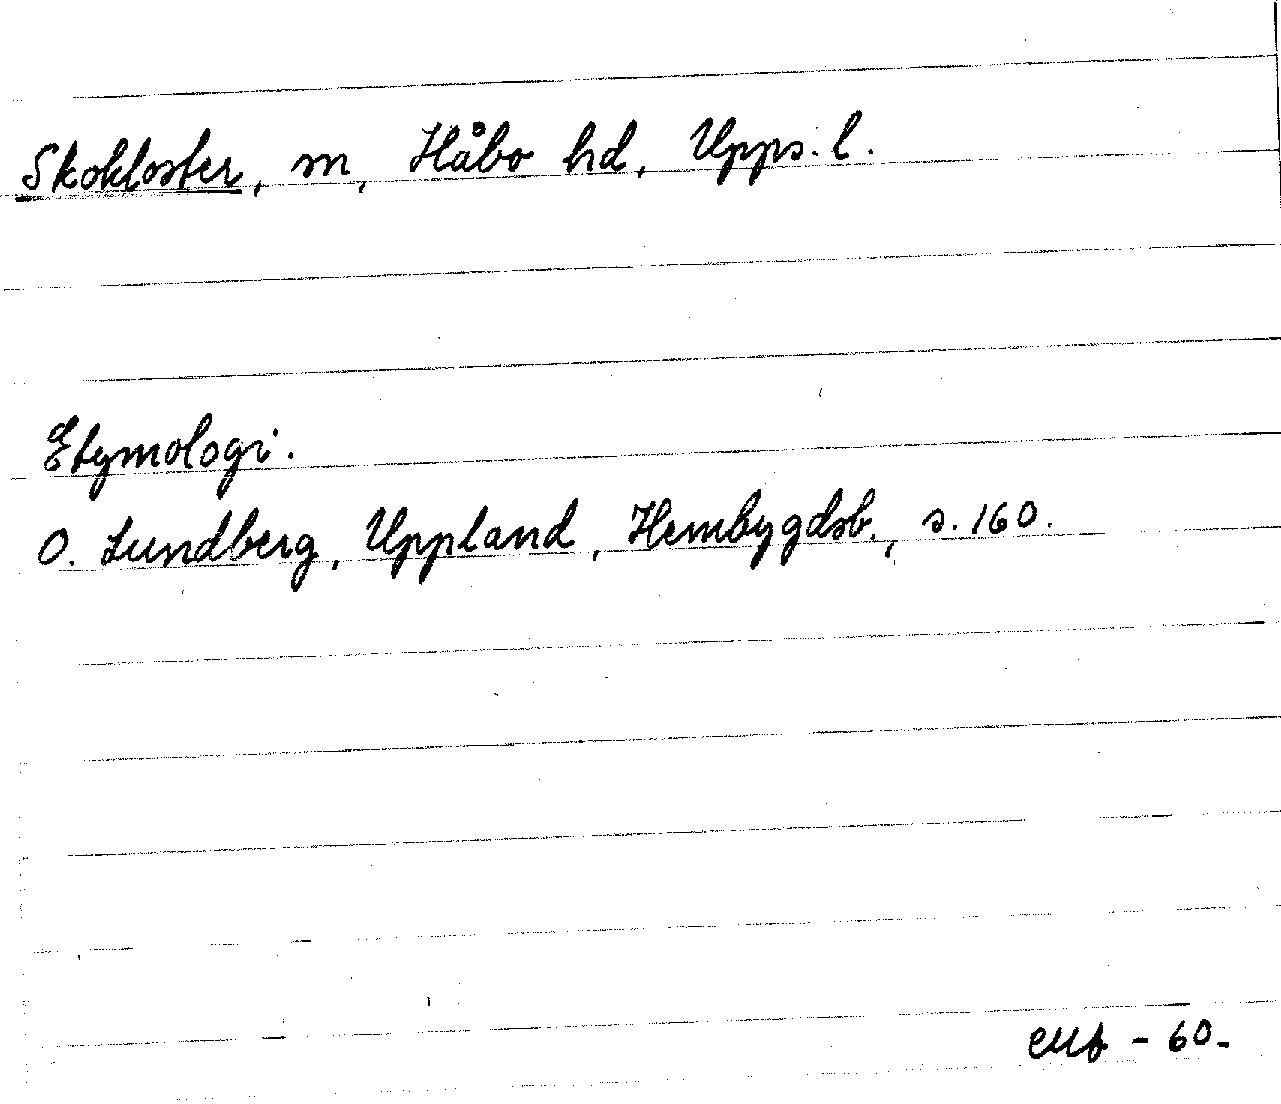 Skokloster, sn, Håbo hd, Upps. l.
Etymologi.
O. Lundberg, Uppland, Hembygdsb., s. 160.
- 60-